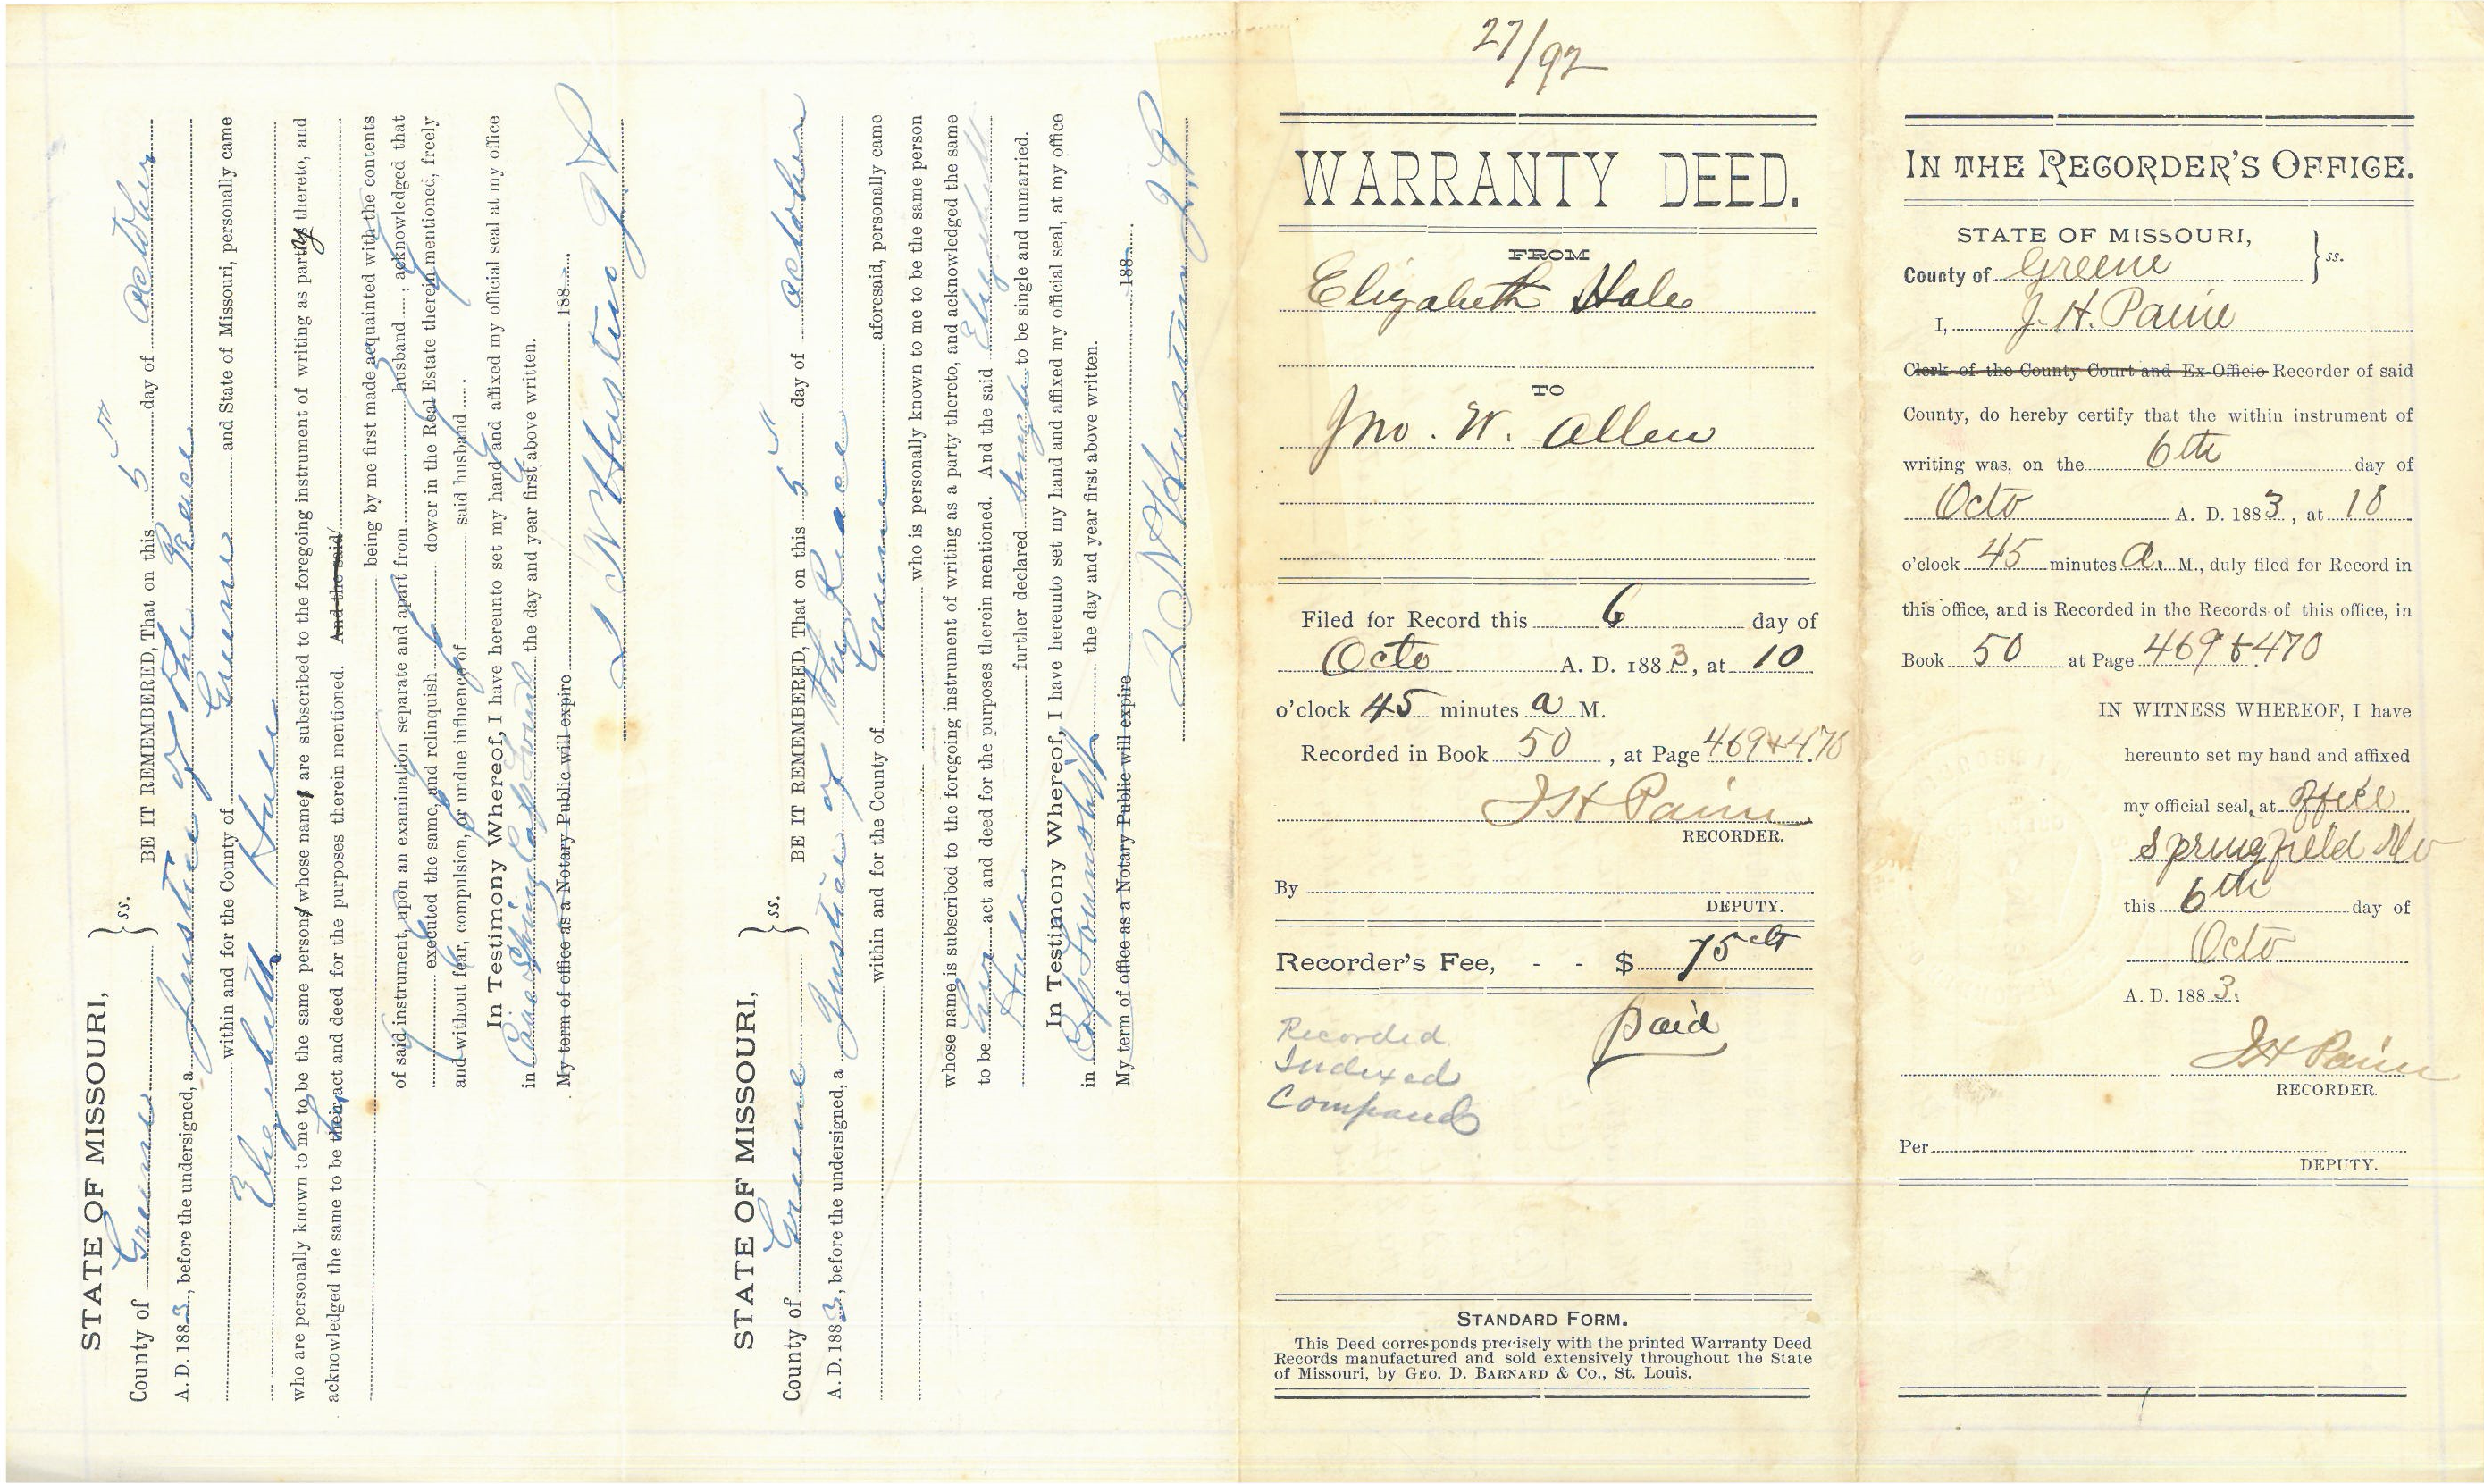 STATE OF MISSOURI,
County of Greene } ss. BE IT REMEMBERED, That on this 5" day of October
A. D. 1883, before the undersigned, a Justice of the Peace
within and for the County of Greene and State of Missouri, personally came
Elizabeth Hale
who are personally known to me to be the same persons whose names are subscribed to the foregoing instrument of writing as party thereto, and
acknowledged the same to be their her act and deed for the purposes therein mentioned. And the said
being by me first made acquainted with the contents
of said instrument, upon an examination separate and apart from husband, acknowledged that
executed the same, and relinquish dower in the Real Estate therein mentioned, freely
and without fear, compulsion, or undue influence of said husband
In Testimony Whereof, I have hereunto set my hand and affixed my official seal at my office
in the day and year first above written.
My term of office as a Notary Public will expire 188
J P
STATE OF MISSOURI,
County of Greene } ss. BE IT REMEMBERED, That on this 5" day of October
A. D. 1883, before the undersigned, a Justice of the Peace
within and for the County of Greene aforesaid, personally came
who is personally known to me to be the same person
whose name is subscribed to the foregoing instrument of writing as a party thereto, and acknowledged the same
to be her act and deed for the purposes therein mentioned. And the said Elizabeth
Hale further declared to be single and unmarried.
In Testimony Whereof, I have hereunto set my hand and affixed my official seal, at my office
in Township the day and year first above written.
My term of office as a Notary Public will expire 188
J P
27/92
WARRANTY DEED.
FROM
Elizabeth Hale
TO
Jno. W. Allen
Filed for Record this 6 day of
Octo A. D. 1883, at 10
o'clock 45 minutes a M.
Recorded in Book 50, at Page 469 & 470
J H Paine
RECORDER.
By
DEPUTY.
Recorder's Fee, - - $ 75 cts
paid
Recorded
Indexed
Compared
STANDARD FORM.
This Deed corresponds precisely with the printed Warranty Deed
Records manufactured and sold extensively throughout the State
of Missouri, by GEO. D. BARNARD & CO., St. Louis.
IN THE RECORDER'S OFFICE.
STATE OF MISSOURI,
County of Greene } ss.
I, J. H. Paine
Clerk of the County Court and Ex-Officio Recorder of said
County, do hereby certify that the within instrument of
writing was, on the 6th day of
Octo A. D. 1883, at 10
o'clock 45 minutes a. M., duly filed for Record in
this office, and is Recorded in the Records of this office, in
Book 50 at Page 469 & 470
IN WITNESS WHEREOF, I have
hereunto set my hand and affixed
my official seal, at office
Springfield Mo
this 6th day of
Octo
A. D. 1883.
J H Paine
RECORDER.
Per
DEPUTY.